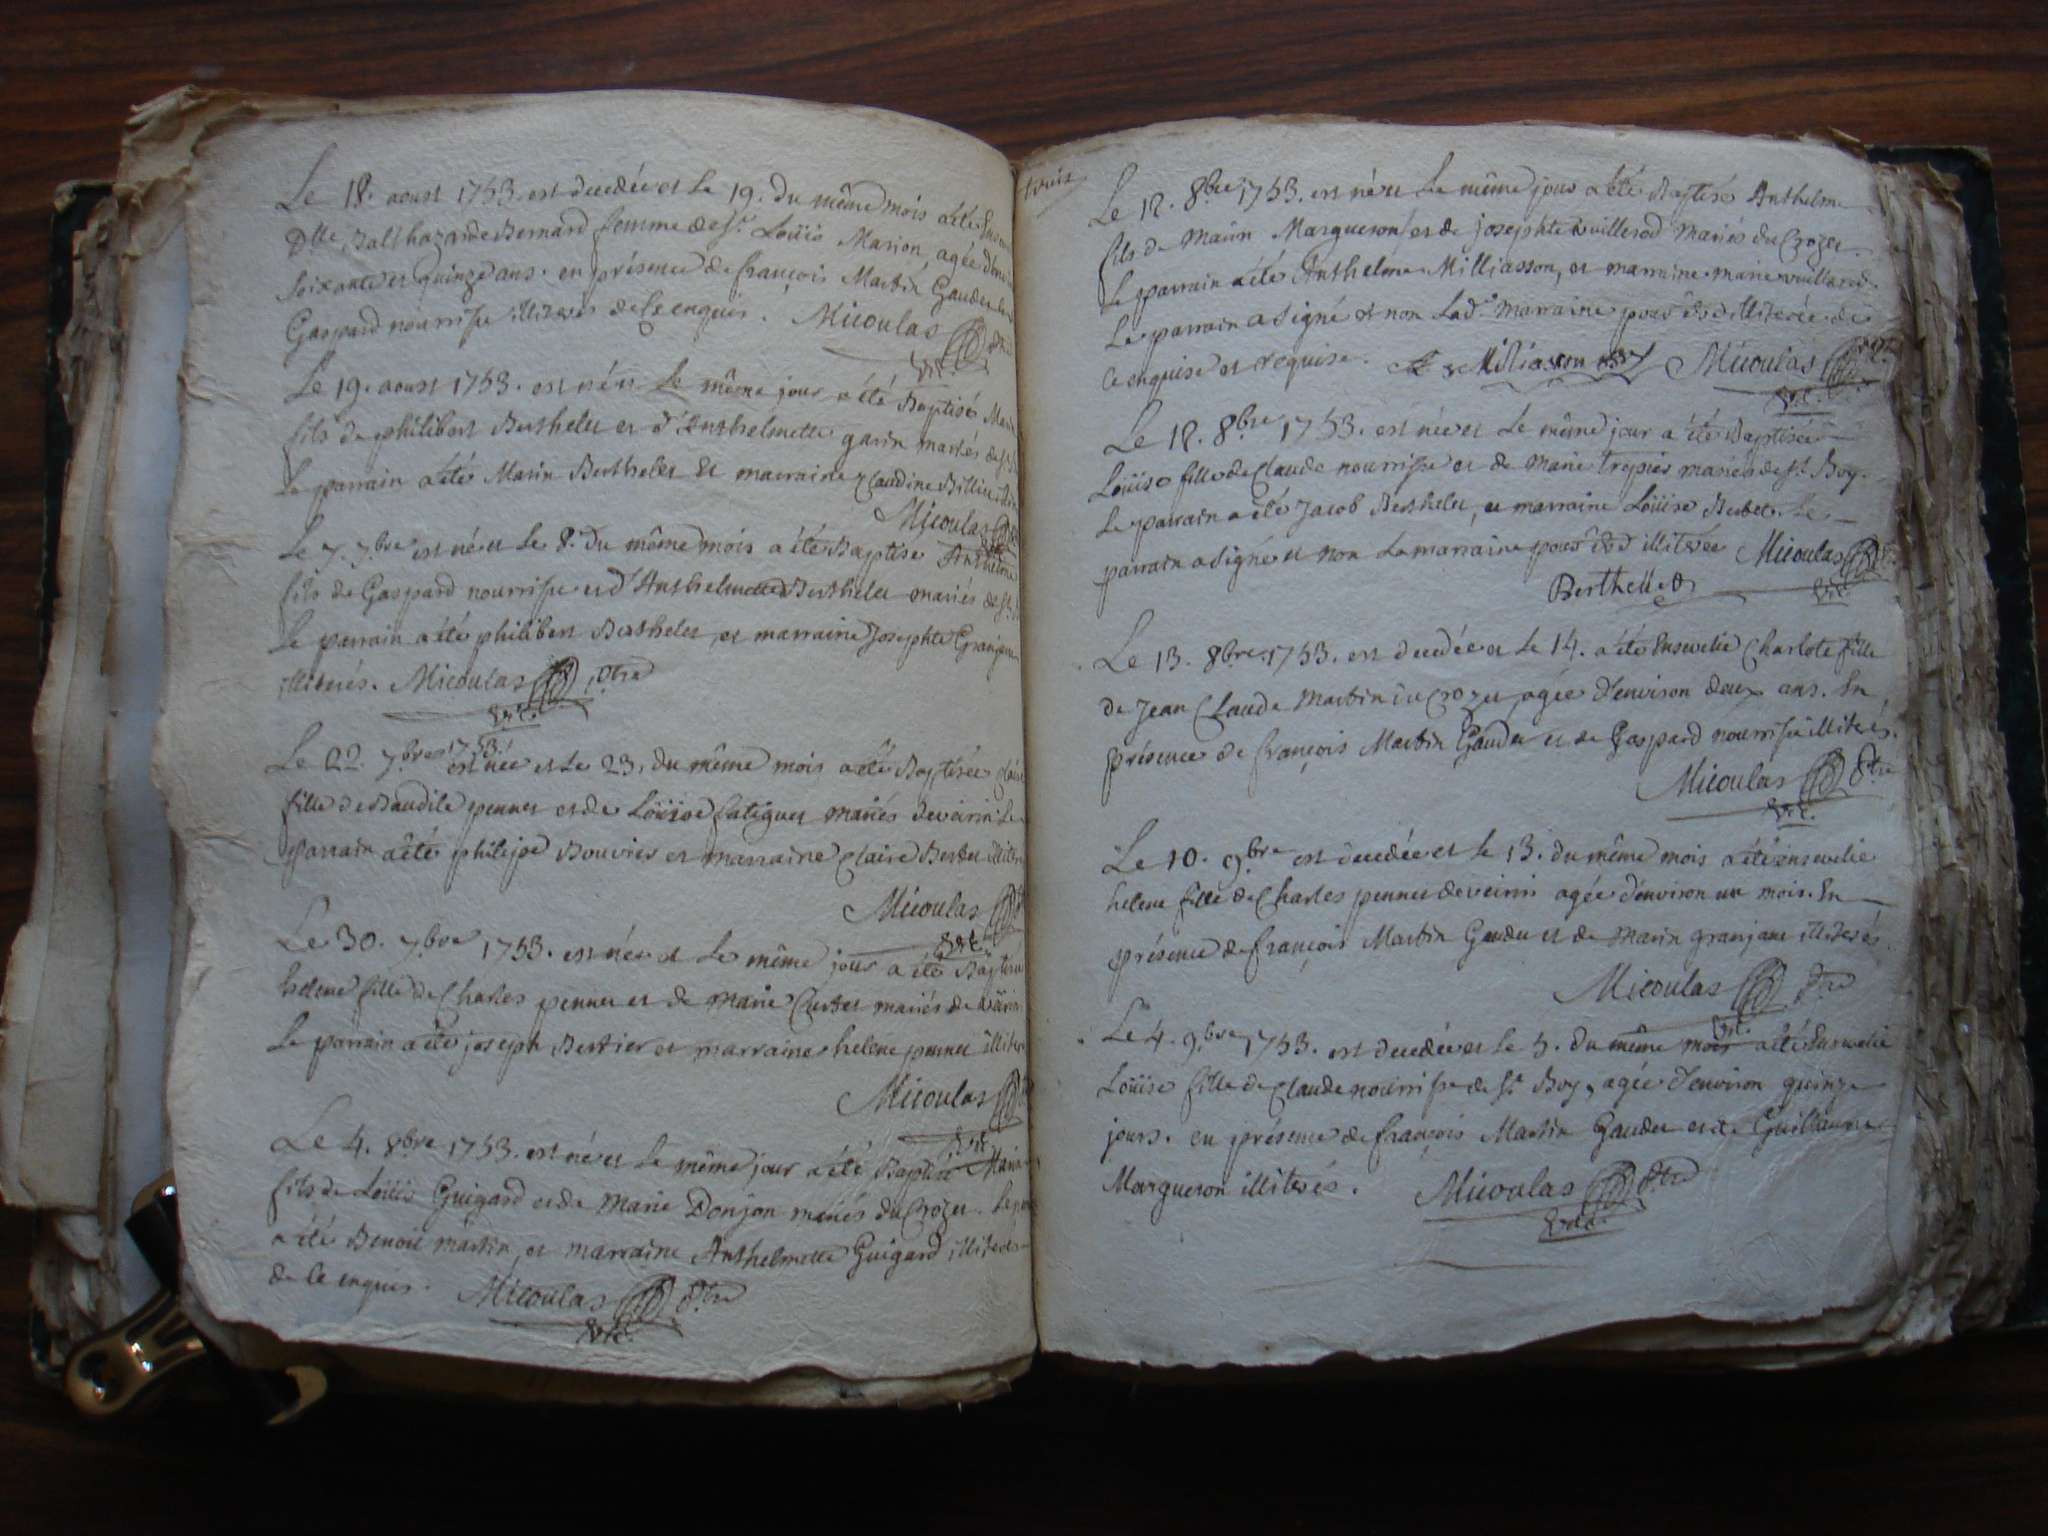 Le 18. aoust 1753. est decedée et le 19. du même mois a été
Dlle Balthazarde Bernard femme de Sr. Loüis Marion, agée
soixante et quinze ans. en présence de françois Martin Gaudet
Gaspard nourrisse illiterés de ce enquis. Micoulas
Le 19. aoust 1753. est né et le même jour a été Baptisé
fils de philibert Berthelet et d'Anthelmette garin mariés de St.
Le parrain a été Marin Berthelet et marraine Claudine Billiet
Micoulas
Le 7. 7.bre est né et le 8. du même mois a été Baptisé Anthelme
fils de Gaspard nourrisse et d'Anthelmette Berthelet mariés de St.
Le parrain a été philibert Berthelet, et marraine Josephte
illiterés. Micoulas ptre
vic.
Le 22. 7.bre 1753. est née et le 23. du même mois a été Baptisée
fille de Baudile pennet et de Loüise mariés de veirin Le
parrain a été philipe Bouvier et marraine Claire Bertet
Micoulas
vic.
Le 30. 7.bre 1753. est née et le même jour a été
helene fille de Charles pennet et de marie Curtet mariés de
Le parrain a été joseph Bertier et marraine helene pennet
Micoulas
vic.
Le 4. 8bre 1753. est né et le même jour a été Baptisé
fils de Loüis Guigard et de marie Donjon mariés du Crozet.
a été Benoit martin, et marraine Anthelmette Guigard
de ce enquis. Micoulas ptre
vic.
Le 12. 8bre 1753. est né et le même jour a été Baptisé Anthelme
fils de Marin Margueron et de josephte vuillerod mariés du Crozet.
le parrain a été Anthelme Milliasson, et marraine marie vuillerod.
Le parrain a signé et non lad. marraine pour illiterée de
ce enquise et requise. Miliasson Micoulas
vic.
Le 12. 8bre 1753. est née et le même jour a été Baptisée
Loüise fille de Claude nourrisse et de marie trepier mariés de St. Boy.
Le parrain a été Jacob Berthelet, et marraine Loüise Bertet. Le
parrain a signé et non la marraine pour illiterée Micoulas
Berthellet
vic.
Le 13. 8bre. 1753. est decedée et le 14. a été Ensevelie Charlote fille
de Jean Claude Martin du Crozet agée d'environ deux ans. En
présence de françois Martin Gaudet et de Gaspard nourrisse illiterés.
Micoulas ptre
vic.
Le 10. 9bre est decedée et le 13. du même mois a été ensevelie
helene fille de Charles pennet de veirin agée d'environ un mois. En
présence de françois Martin Gaudet et de marin granjean illiterés.
Micoulas ptre
vic.
Le 4. 9.bre 1753. est decedée et le 5. du même mois a été Ensevelie
Loüise fille de Claude nourrisse de St. Boy, agée d'environ quinze
jours. en présence de françois Martin Gaudet et de Guillaume
Margueron illiterés. Micoulas ptre